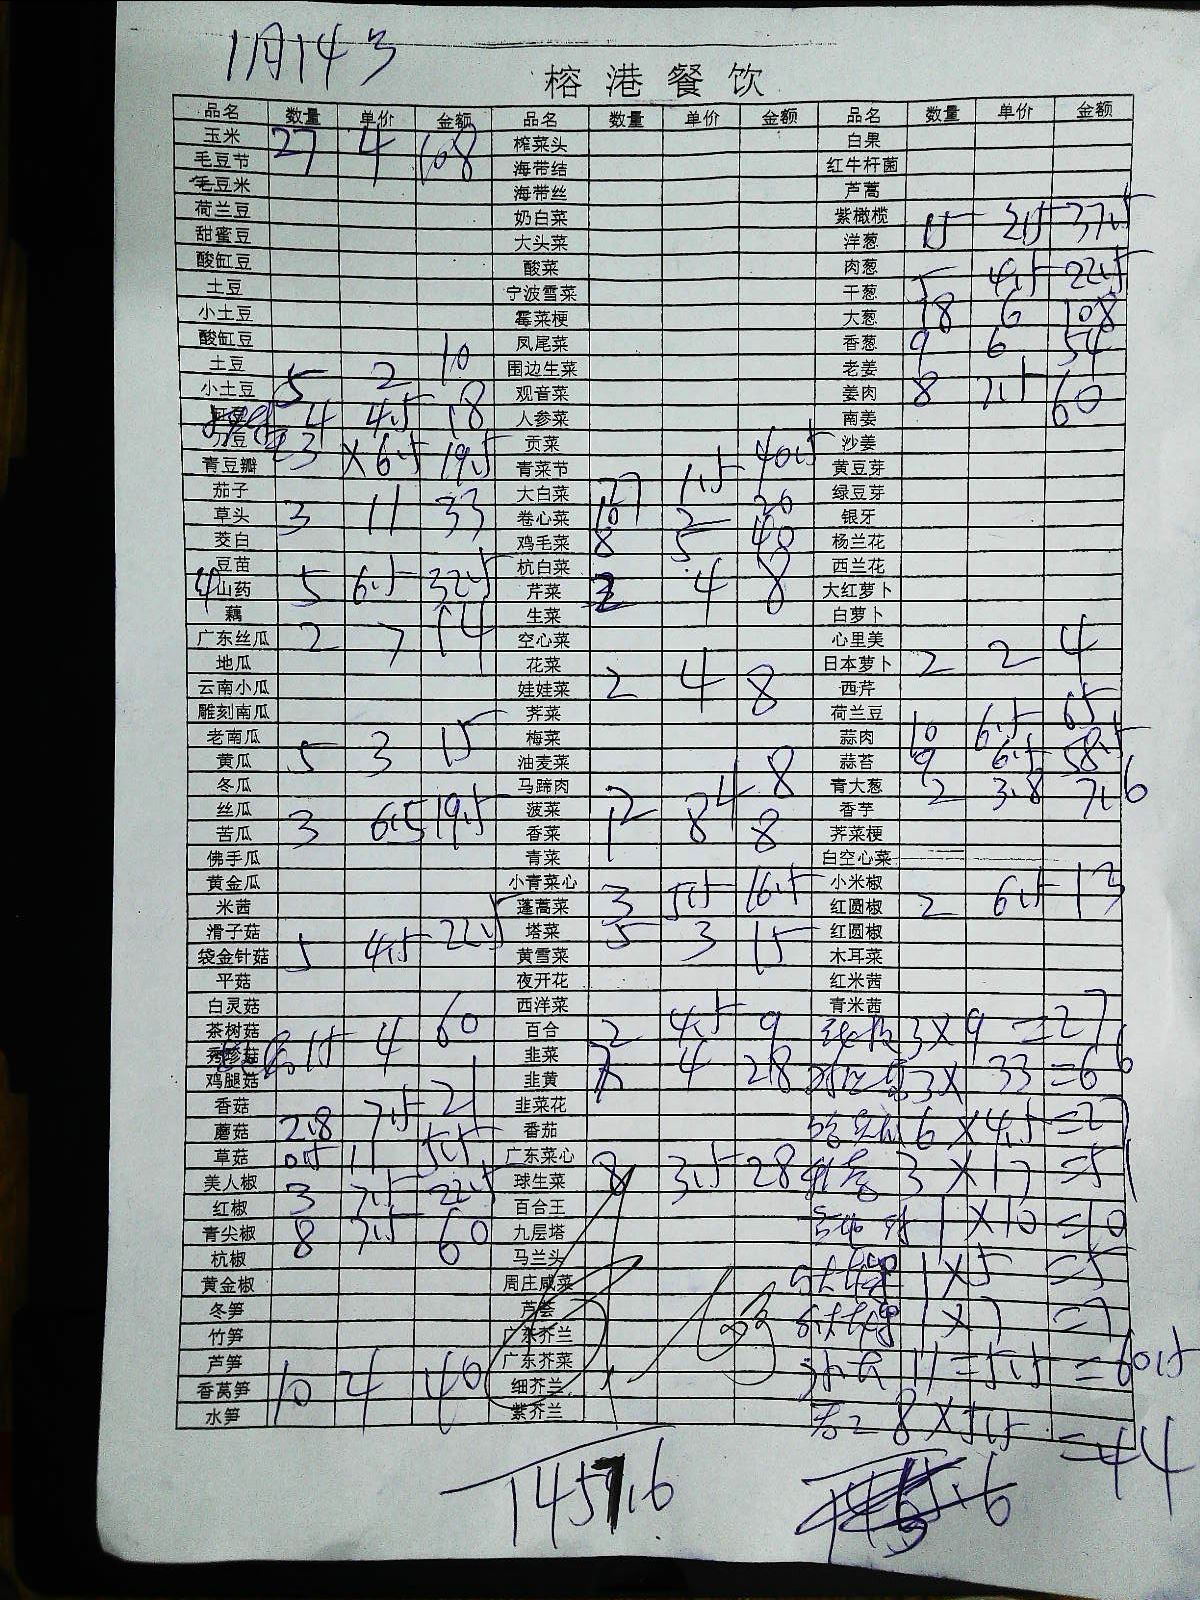 1月14号
榕港餐饮
品名 数量 单价 金额 品名 数量 单价 金额 品名 数量 单价 金额
玉米 27 4 108 榨菜头 白果
毛豆节 海带结 红牛杆菌
毛豆米 海带丝 芦蒿
荷兰豆 奶白菜 紫橄榄
甜蜜豆 大头菜 洋葱 15 2.5 37.5
酸缸豆 酸菜 肉葱
土豆 宁波雪菜 干葱 5 4.5 22.5
小土豆 霉菜梗 大葱 18 6 108
酸缸豆 凤尾菜 香葱 9 6 54
土豆 5 2 10 围边生菜 老姜
小土豆 观音菜 姜肉 8 7.5 60
4 4.5 18 人参菜 南姜
3 × 6.5 19.5 贡菜 沙姜
青豆瓣 青菜节 黄豆芽
茄子 大白菜 27 1.5 40.5 绿豆芽
草头 3 11 33 卷心菜 10 2 20 银牙
茭白 鸡毛菜 8 5 40 杨兰花
豆苗 杭白菜 西兰花
山药 5 6.5 32.5 芹菜 2 4 8 大红萝卜
藕 生菜 白萝卜
广东丝瓜 2 7 14 空心菜 心里美
地瓜 花菜 日本萝卜 2 2 4
云南小瓜 娃娃菜 2 4 8 西芹
雕刻南瓜 荠菜 荷兰豆
老南瓜 梅菜 蒜肉 10 6.5 65
黄瓜 5 3 15 油麦菜 蒜苔 9 6.5 58.5
冬瓜 马蹄肉 青大葱 2 3.8 7.6
丝瓜 菠菜 2 4 8 香芋
苦瓜 3 6.5 19.5 香菜 1 8 8 荠菜梗
佛手瓜 青菜 白空心菜
黄金瓜 小青菜心 小米椒
米茜 蓬蒿菜 3 5.5 16.5 红圆椒 2 6.5 13
滑子菇 塔菜 5 3 15 红圆椒
袋金针菇 5 4.5 22.5 黄雪菜 木耳菜
平菇 夜开花 红米茜
白灵菇 西洋菜 青米茜
茶树菇 百合 2 4.5 9 3×9=27
秀珍菇 15 4 60 韭菜 7 4 28
鸡腿菇 韭黄 33=66
香菇 韭菜花
蘑菇 2.8 7.5 21 番茄 6×4.5=27
草菇 0.5 11 5.5 广东菜心
美人椒 3 7.5 22.5 球生菜 8 3.5 28 3×17=51
红椒 百合王
青尖椒 8 7.5 60 九层塔 1×10=10
杭椒 马兰头
黄金椒 周庄咸菜 1×5=5
冬笋 芦荟
竹笋 广东芥兰 1×7=7
芦笋 广东芥菜 11=5.5=60.5
香莴笋 10 4 40 细芥兰
水笋 紫芥兰 8×5.5=44
1457.6